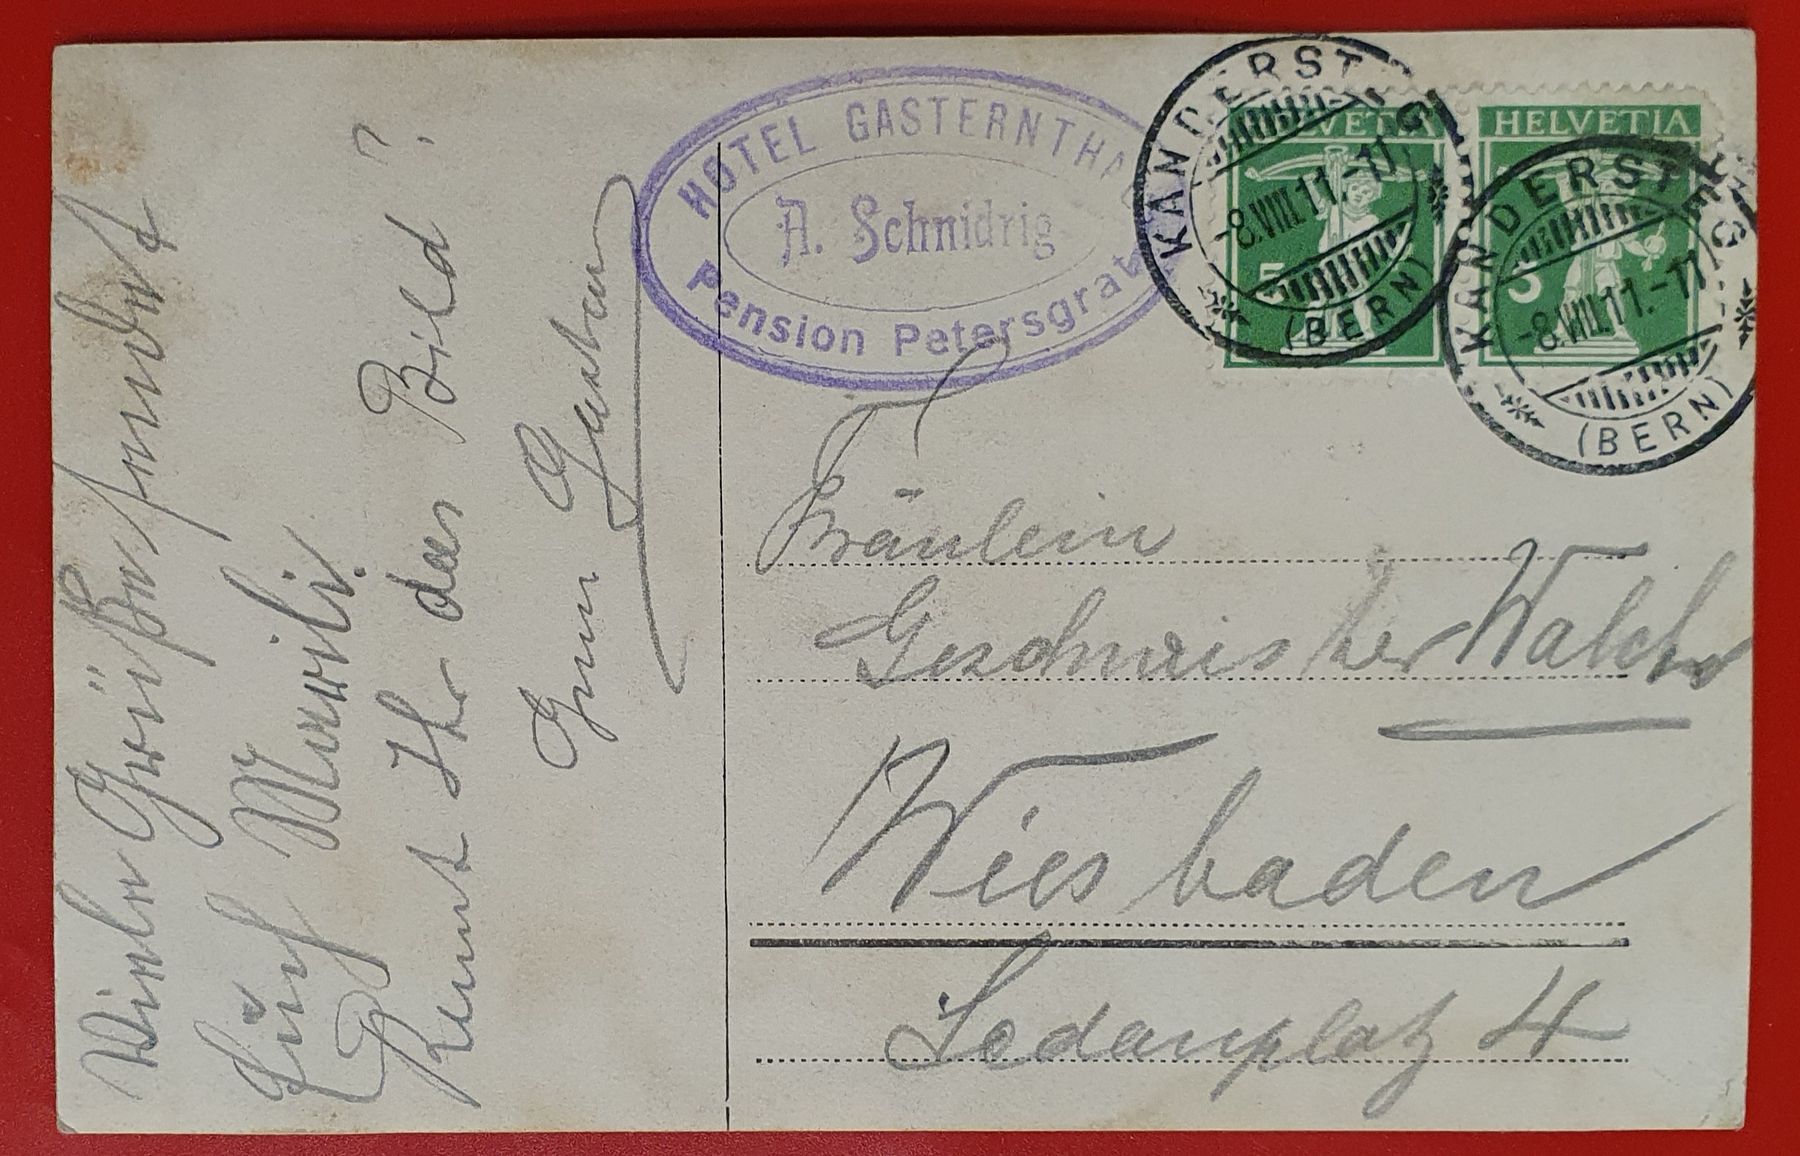 Viele Grüße sendet
Euch Marili.
Kennt Ihr das Bild?
Gruss Gustav
HOTEL GASTERNTHAL
A. Schnidrig
Pension Petersgrat
HELVETIA
5
KANDERSTEG
-8.VIII.11.-11
(BERN)
HELVETIA
5
KANDERSTEG
-8.VIII.11.-11
(BERN)
Fräulein
Geschwister
Wiesbaden
Sedanplatz 4